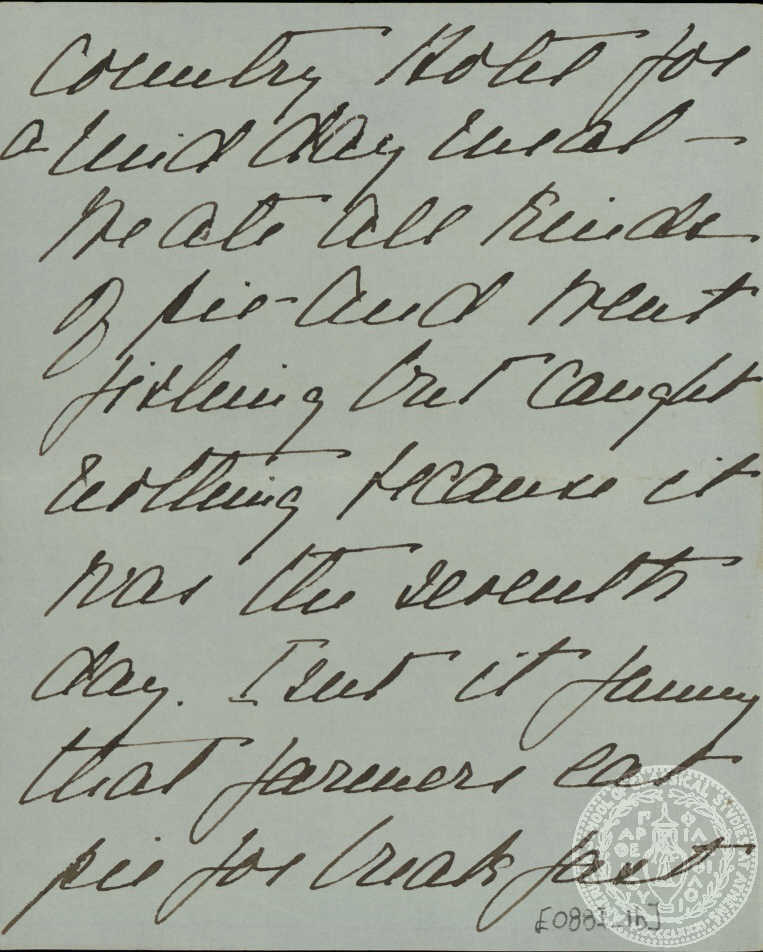 country Hotel for
a mid day meal -
We ate all kinds
of pie - and went
fishing but caught
nothing because it
was the seventh
day. Isnt it funny
that farmers eat
pie for breakfast